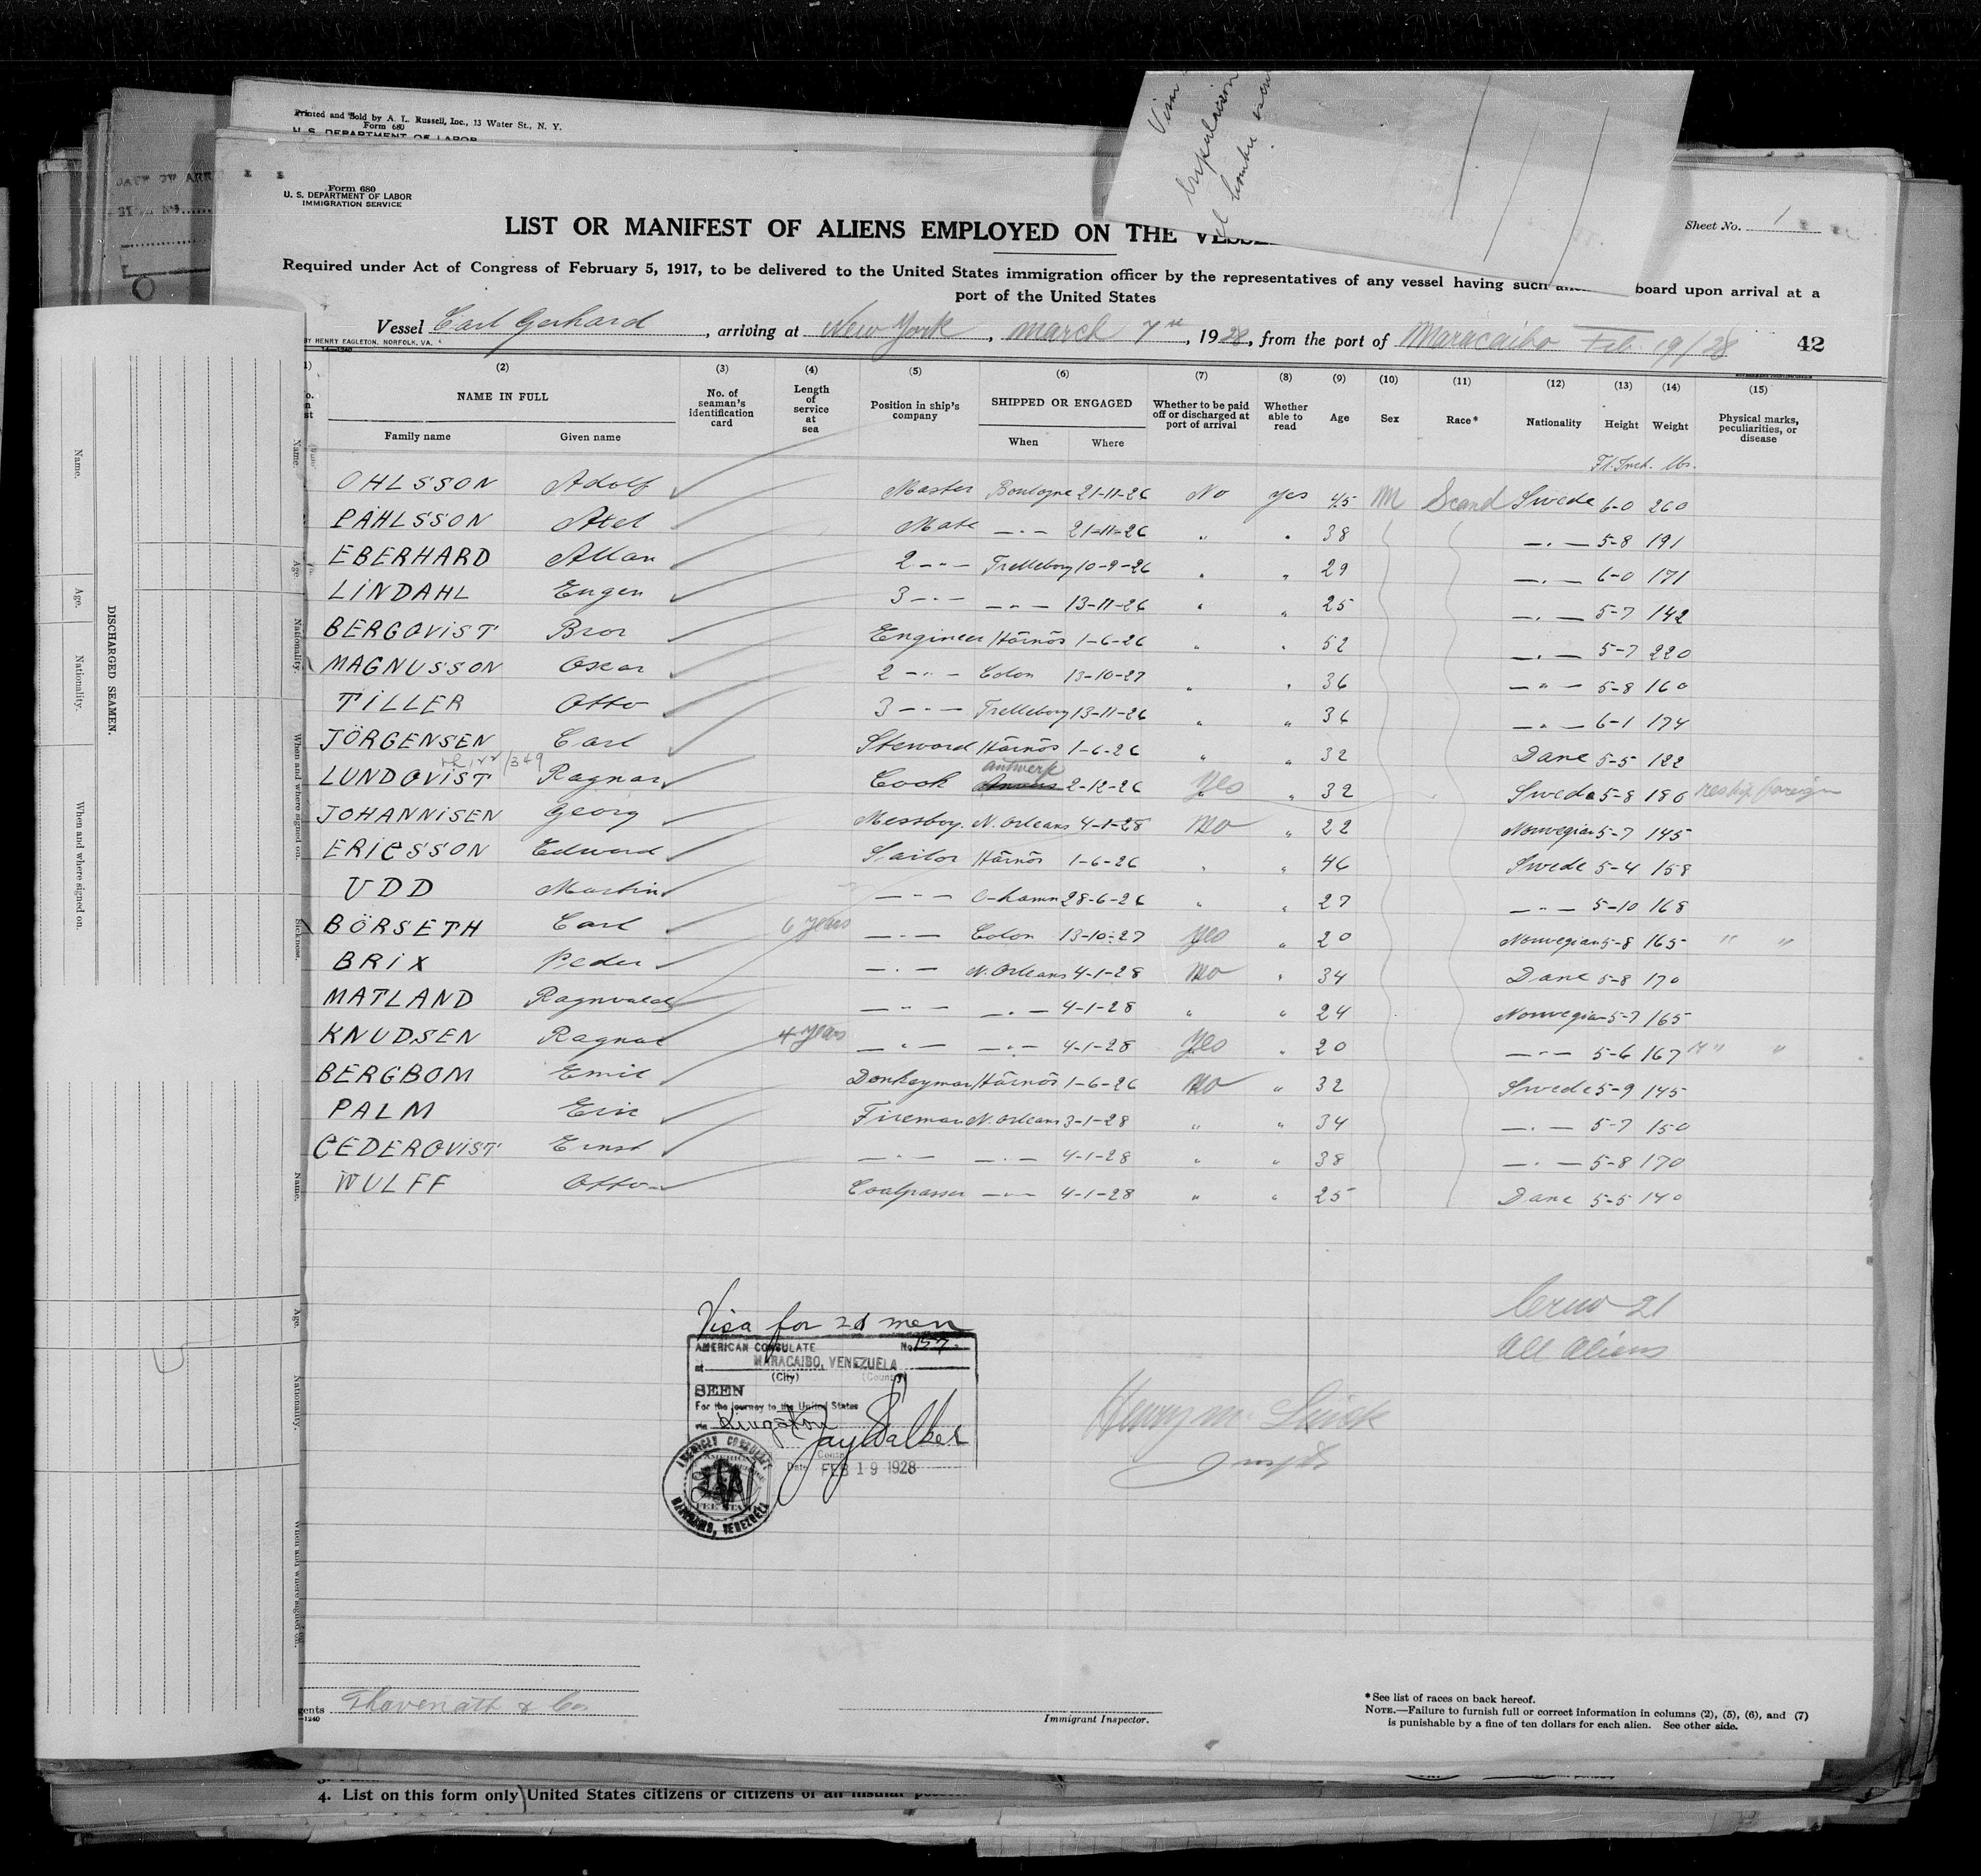 Printed and Sold by A. L. Russell, Inc., 13 Water St., N. Y.
Form 680
U. S. DEPARTMENT OF LABOR
Visa
Form 680
U. S. DEPARTMENT OF LABOR
IMMIGRATION SERVICE
LIST OR MANIFEST OF ALIENS EMPLOYED ON THE VESSEL
Sheet No. 1
Required under Act of Congress of February 5, 1917, to be delivered to the United States immigration officer by the representatives of any vessel having such board upon arrival at a
port of the United States
Vessel Carl Gerhard, arriving at New York, March 7th, 1928, from the port of Maracaibo Feb. 19/28 42
BY HENRY EAGLETON, NORFOLK, VA.
(2) (3) (4) (5) (6) (7) (8) (9) (10) (11) (12) (13) (14) (15)
NAME IN FULL
Family name Given name
No. of seaman's identification card
Length of service at sea
Position in ship's company
SHIPPED OR ENGAGED
When Where
Whether to be paid off or discharged at port of arrival
Whether able to read
Age Sex Race* Nationality Height Weight
Physical marks, peculiarities, or disease
Ft. Inch. lbs.
OHLSSON Adolf Master Boulogne 21-11-26 No yes 45 M Scand Swede 6-0 260
PÅHLSSON Axel Mate —"— 21-11-26 " " 38 —"— 5-8 191
EBERHARD Allan 2 —"— Trelleborg 10-9-26 " " 29 —"— 6-0 171
LINDAHL Eugen 3 —"— —"— 13-11-26 " " 25 —"— 5-7 142
BERGQVIST Bror Engineer Härnös 1-6-26 " " 52 —"— 5-7 220
MAGNUSSON Oscar 2 —"— Colon 13-10-27 " " 36 —"— 5-8 160
TILLER Otto 3 —"— Trelleborg 13-11-26 " " 36 —"— 6-1 174
JÖRGENSEN Carl Steward Härnös 1-6-26 " " 32 Dane 5-5 122
Antwerp
LUNDQVIST Ragnar Cook Anvers 2-12-26 Yes " 32 Swede 5-8 186 reship foreign
JOHANNISEN Georg Messboy. N. Orleans 4-1-28 No " 22 Norwegian 5-7 145
ERICSSON Edward Sailor Härnös 1-6-26 " " 46 Swede 5-4 158
UDD Martin —"— O-hamn 28-6-26 " " 27 —"— 5-10 168
BÖRSETH Carl 6 years —"— Colon 13-10-27 Yes " 20 Norwegian 5-8 165 " "
BRIX Peder —"— N. Orleans 4-1-28 No " 34 Dane 5-8 170
MATLAND Ragnvald —"— —"— 4-1-28 " " 24 Norwegian 5-7 165
KNUDSEN Ragnar 4 years —"— —"— 4-1-28 Yes " 20 —"— 5-6 167 " "
BERGBOM Emil Donkeyman Härnös 1-6-26 No " 32 Swede 5-9 145
PALM Eric Fireman N. Orleans 3-1-28 " " 34 —"— 5-7 150
CEDERQVIST Ernst —"— —"— 4-1-28 " " 38 —"— 5-8 170
WULFF Otto Coalpasser —"— 4-1-28 " " 25 Dane 5-5 140
Crew 21
All Aliens
Visa for 21 men
AMERICAN CONSULATE No 157
at MARACAIBO, VENEZUELA
(City) (Country)
SEEN
For the journey to the United States
via Kingston
Jay Walker
Date FEB 19 1928
AMERICAN CONSULATE
MARACAIBO, VENEZUELA
Thavenath & Co
Immigrant Inspector.
* See list of races on back hereof.
NOTE.—Failure to furnish full or correct information in columns (2), (5), (6), and (7)
is punishable by a fine of ten dollars for each alien. See other side.
4. List on this form only United States citizens or citizens of an insular
DISCHARGED SEAMEN.
Name. Age. Nationality. When and where signed on.
Name. Age. Nationality. When and where signed on. Sickness.
Name. Age. Nationality. When and where signed on.